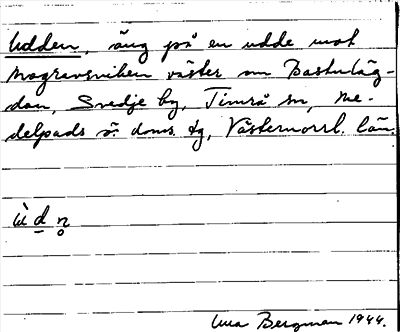 Udden, äng på en udde mot
Mogravsviken väster om Bastuläg-
dan, Svedje by, Timrå sn, Me-
delpads ö. doms. tg, Västernorrl. län.
ù d n
Bergman 1944.